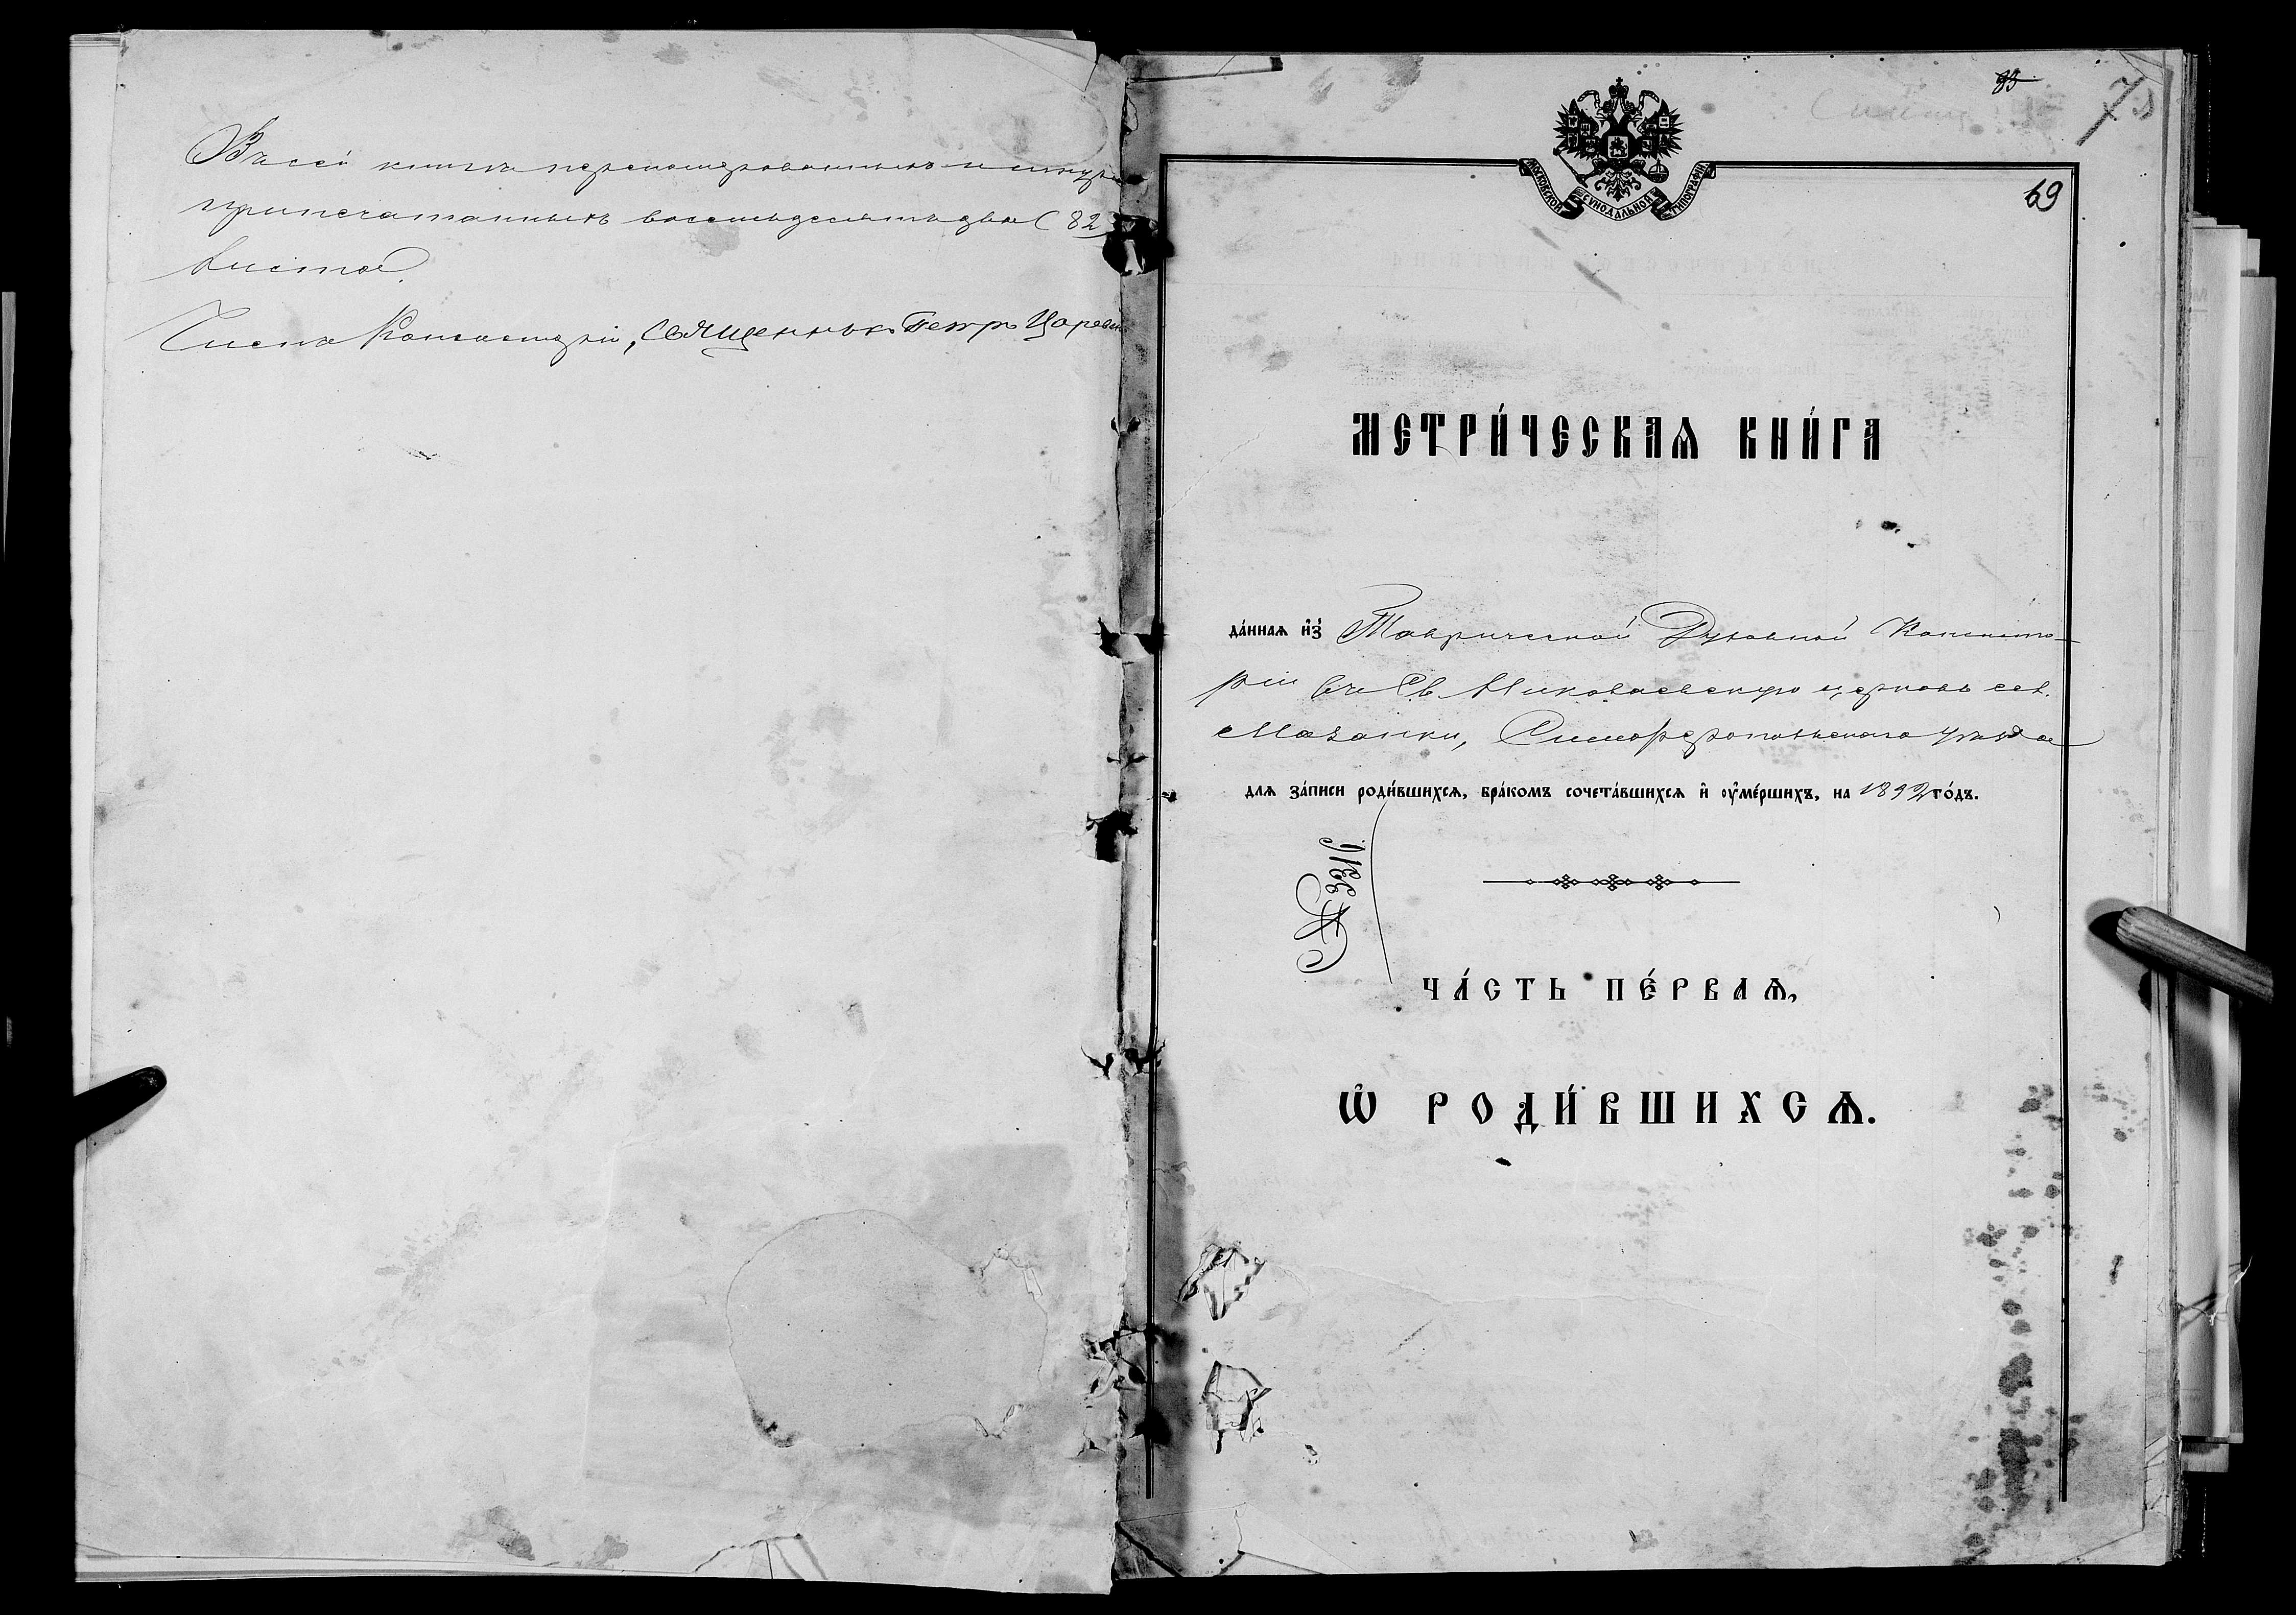 В сей книге перенумерованныхъ и шнуро
припечатанныхъ восемьдесятъ два (82
листа.
Членъ Консисторіи, Священникъ Петръ Царев
83
7
МОСКОВСКОЙ СУНОДАЛЬНОЙ ТИПОГРАФІИ
69
МЕТРИ́ЧЕСКАѦ КНИ́ГА
да́ннаѧ и҆з̾ Таврической Духовной Консисто-
ріи въ Св. Николаевскую церковь сел.
Мазанки, Симферопольскаго уѣзда
для за́писи роди́вшихсѧ, бра́комъ сочета́вшихсѧ и҆ ᲂу҆ме́ршихъ, на 1892 го́дъ.
№ 3316
ЧА́СТЬ ПЕ́РВАѦ,
Ѡ҆ РОДИ́ВШИХСѦ.